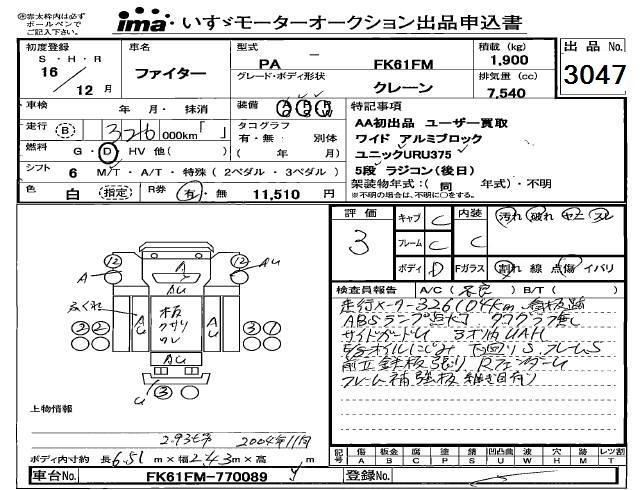 ※赤太枠内は必ず
ボールペンで
ご記入下さい。
ima いすゞモーターオークション出品申込書
初度登録
S・H・R
16
12 月
車名
ファイター
型式
PA － FK61FM
グレード・ボディ形状
クレーン
積載 (kg)
1,900
排気量 (cc)
7,540
出品 No.
3047
車検 年 月・ 抹消
装備 A P P
C S W
特記事項
AA初出品 ユーザー買取
ワイド アルミブロック
ユニックURU375
5段 ラジコン(後日)
架装物年式:( 同 年式)・不明
※不明の場合は、不明に○をする。
走行 B 326 000km「 」
タコグラフ
有・無 別体
( 年 月)
燃料 G・D・HV 他( )
シフト 6 M/T・A/T・特殊 (2ペダル・3ペダル)
色 白 指定 R券 有・無 11,510 円
評価
3
キャブ C
フレーム C
ボディ D
内装 C
Fガラス
汚れ 破れ ヤニ スレ
割れ 線 点傷 イバリ
検査員報告 A/C( 不良 ) B/T( )
走行メーター326104km
ABSランプ点灯 タコグラフ無し
サイドガードU
下回りS フレームS
フレーム補強板 継ぎ目有り
12 A A 12 AU
AU
2 2 AU 板 クサリ AU 3 3
AU
U 3
上物情報
2.93t吊 2004年11月
ボディ内寸約 長6.51m×幅2.43m×高 m
車台No. FK61FM-770089
記号 傷 A 板金 B 腐 C 塗 P 錆 S 凹凸曲 U 波 W 穴 H 欠 M レツ割 T
登録No.